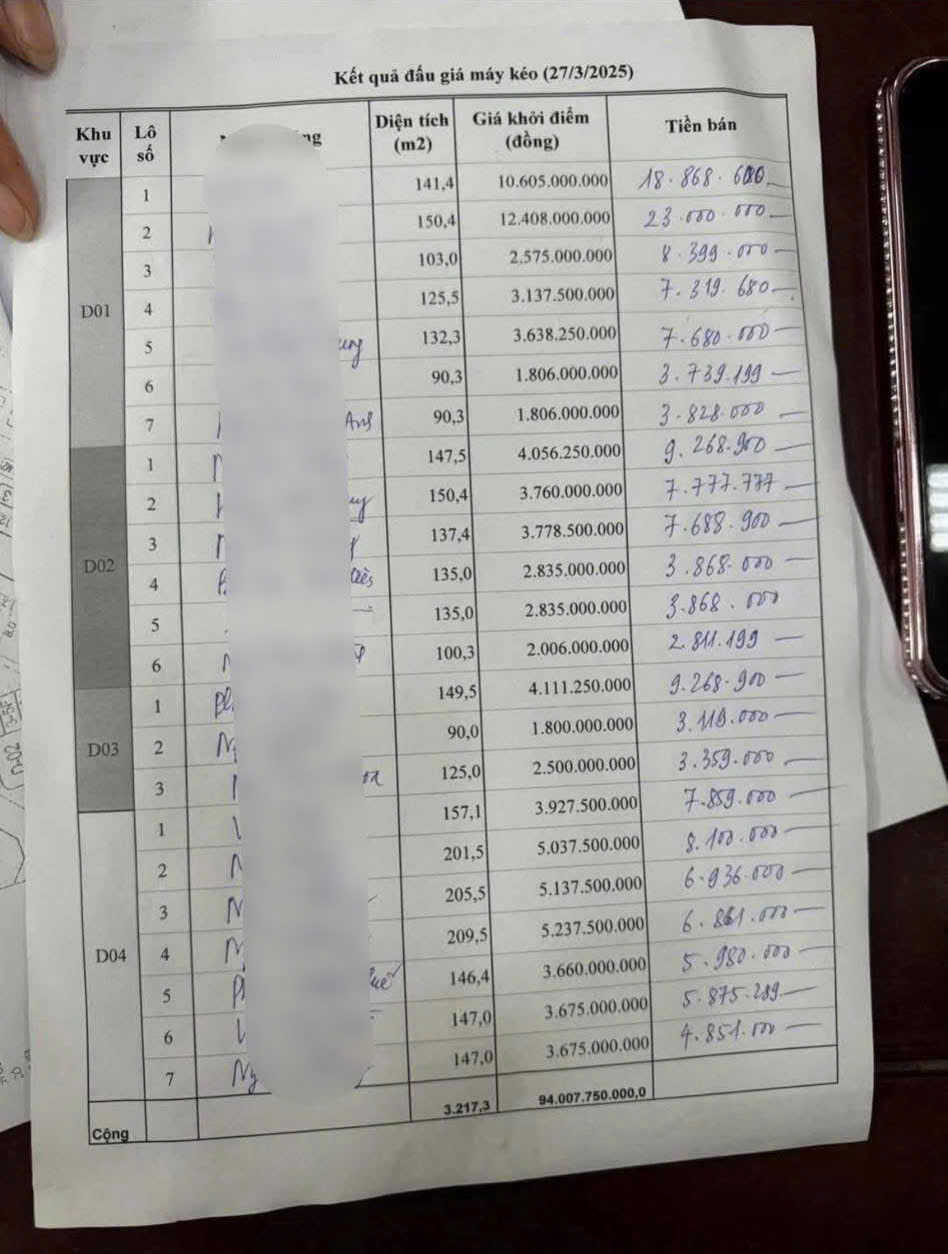 Kết quả đấu giá máy kéo (27/3/2025)
Khu vực Lô số Diện tích (m2) Giá khởi điểm (đồng) Tiền bán
D01
1 141,4 10.605.000.000 18.868.600
2 150,4 12.408.000.000 23.000.000
3 103,0 2.575.000.000 8.399.000
4 125,5 3.137.500.000 7.319.680
5 132,3 3.638.250.000 7.680.000
6 90,3 1.806.000.000 3.739.199
7 90,3 1.806.000.000 3.828.000
D02
1 147,5 4.056.250.000 9.268.900
2 150,4 3.760.000.000 7.777.777
3 137,4 3.778.500.000 7.688.900
4 135,0 2.835.000.000 3.868.000
5 135,0 2.835.000.000 3.868.000
6 100,3 2.006.000.000 2.811.199
D03
1 149,5 4.111.250.000 9.268.900
2 90,0 1.800.000.000 3.119.000
3 125,0 2.500.000.000 3.359.000
D04
1 157,1 3.927.500.000 7.859.000
2 201,5 5.037.500.000 8.100.000
3 205,5 5.137.500.000 6.936.000
4 209,5 5.237.500.000 6.861.000
5 146,4 3.660.000.000 5.980.000
6 147,0 3.675.000.000 5.875.289
7 147,0 3.675.000.000 4.851.000
Cộng 3.217,3 94.007.750.000,0